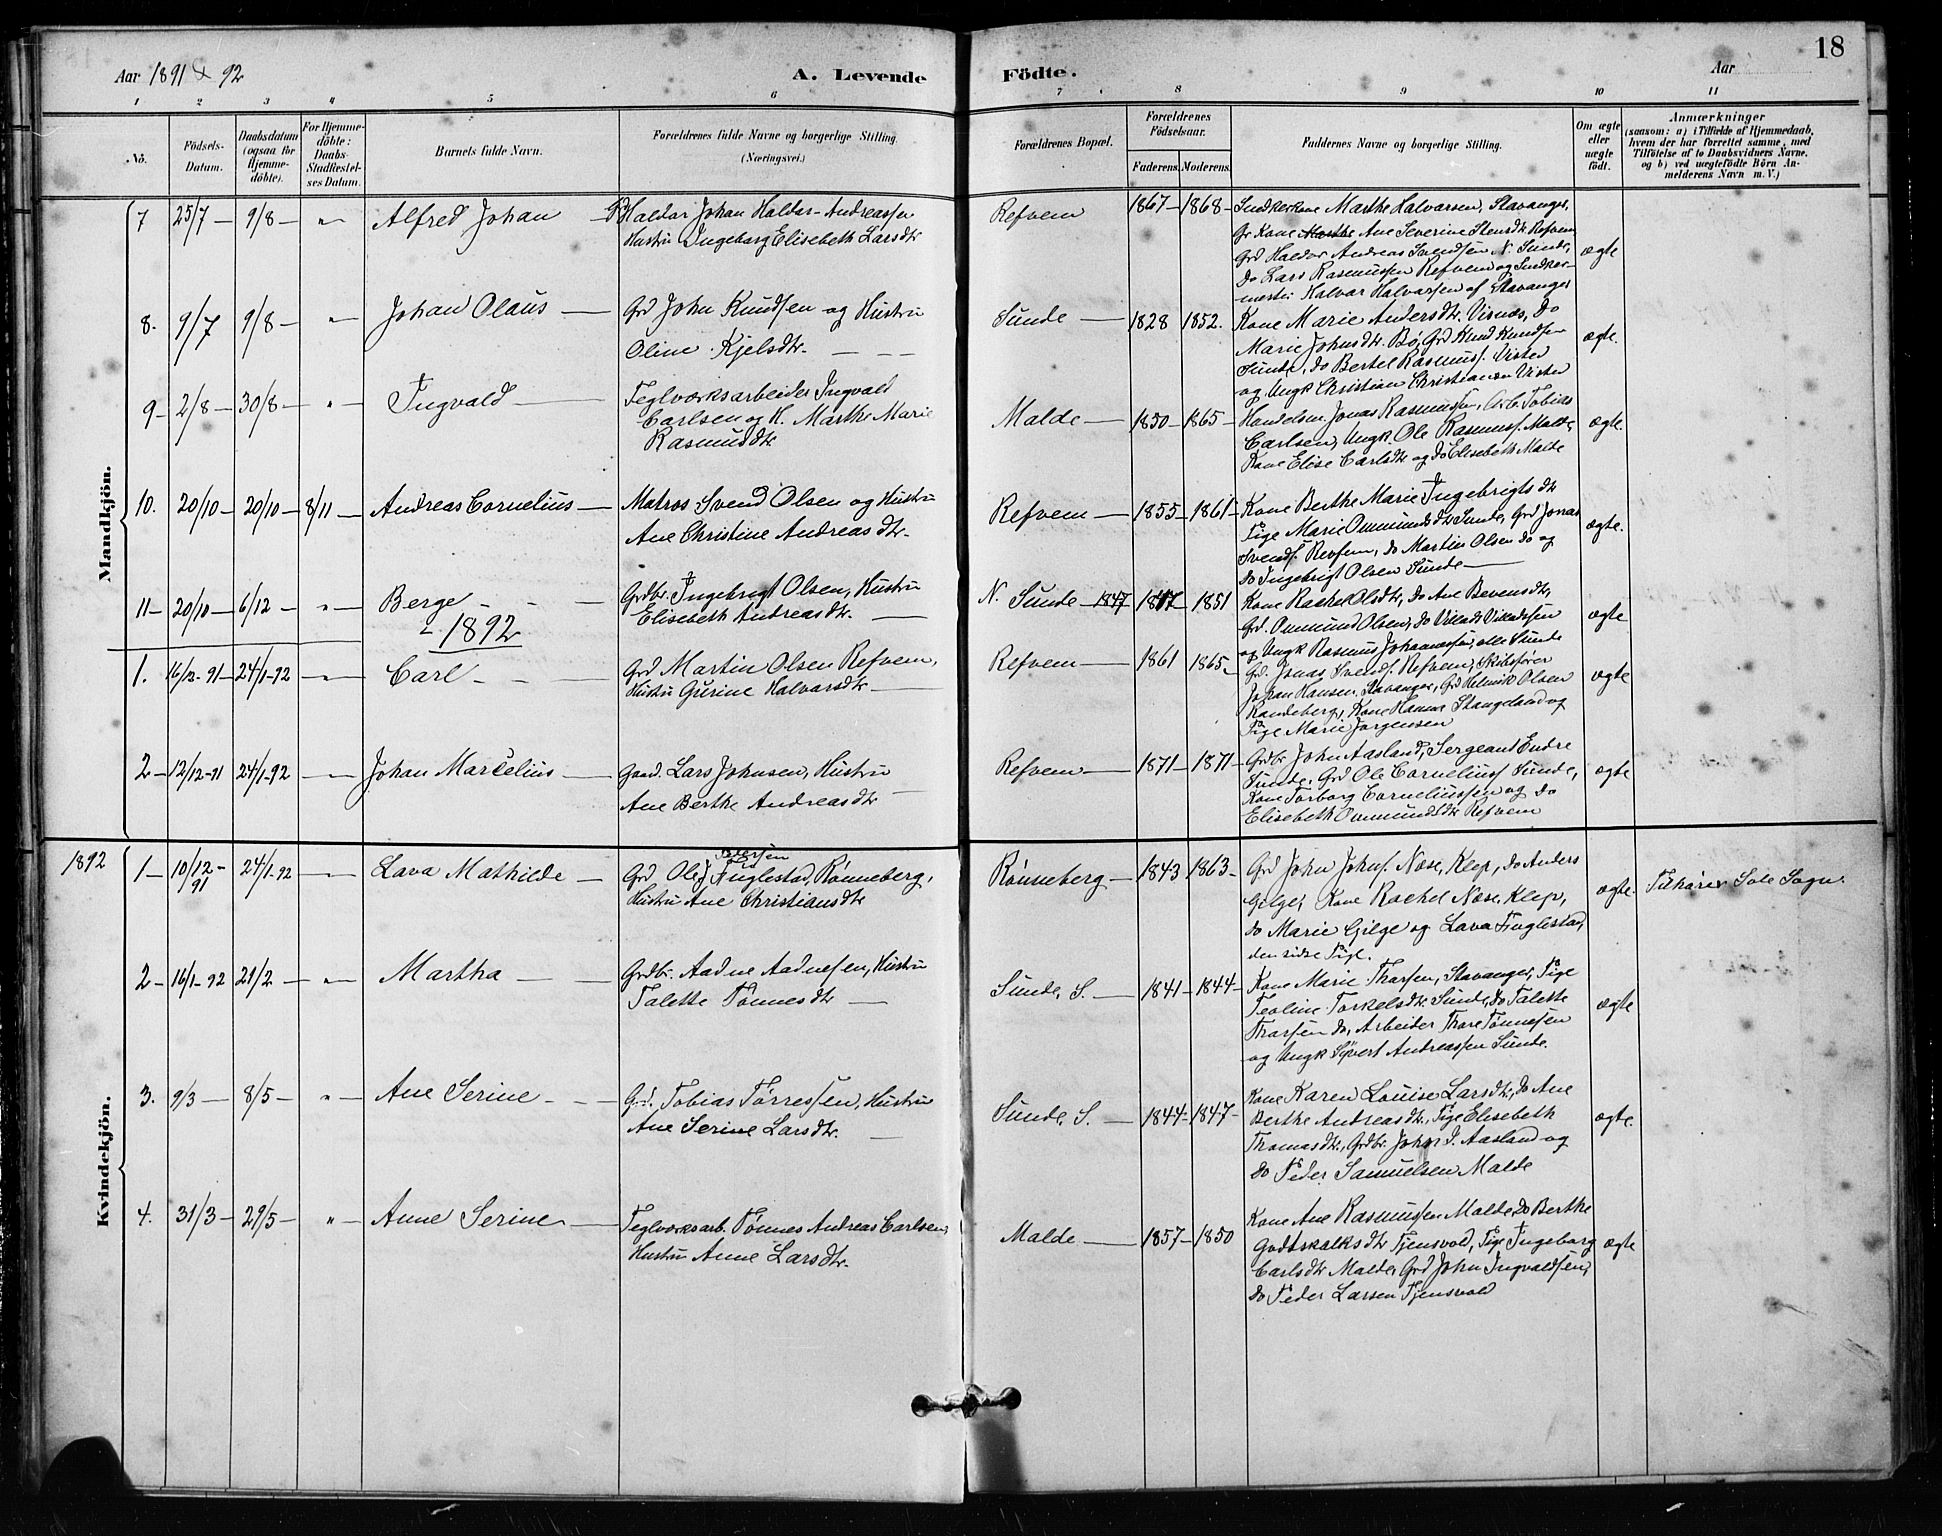 18
Aar 1891 & 92
A. Levende
Födte.
Aar
1 2 3 4 5 6 7 8 9 10 11
No.
Födsels-Datum.
Daabsdatum (ogsaa for Hjemme-döbte).
For Hjemme-döbte: Daabs-Stadfæstel-ses Datum.
Barnets fulde Navn.
Forældrenes fulde Navne og borgerlige Stilling.
(Næringsvei.)
Forældrenes Bopæl.
Forældrenes Födselsaar.
Faderens. Moderens.
Faddernes Navne og borgerlige Stilling.
Om ægte eller uægte födt.
Anmærkninger
(saasom: a) i Tilfælde af Hjemmedaab,
hvem der har forrettet samme, med
Tilföielse af to Daabsvidners Navne,
og b) ved uægtefödte Börn An-
melderens Navn m. V.)
Mandkjön.
7 25/7 — 9/8 — " — Alfred Johan — Haldor Johan Haldor-Andreassen
Hustru Ingeborg Elisebeth Larsdtr
Refvem 1867 — 1868 —
Kone Marthe Halvarsen, Stavanger,
Gr Kone Marthe Ane Severine Stensdtr Refvem
Grd Haldor Andreas Svendsen N. Sunde,
do Lars Rasmussen Refvem og
Halvar Halvarsen af Stavanger
ægte
8. 9/7 9/8 — " — Johan Olaus — Grd John Knudsen og Hustru
Oline Kjelsdtr. — — —
Sunde — 1828 1852.
Kone Marie Andersdtr. Visnæs, do
Marie Johnsdtr. Bø, Grd Knud Knudsen
Sunde, do Bertel Rasmuss. Viste
og Ungk Christian Christiansen Viste
ægte.
9 — 2/8 — 30/8 — " — Ingvald — Teglværksarbeider Ingvald
Carlsen og H. Marthe Marie
Rasmusdtr
Malde — 1850 — 1865 —
Handelsm. Jonas Rasmussen, Arb. Tobias
Carlsen, Ungk. Ole Rasmuss. Malde,
Kone Elise Carlsdtr og do Elisebeth Malde
ægte.
10. 20/10 — 20/10 — 8/11 — Andreas Cornelius — Matros Svend Olsen og Hustru
Ane Christine Andreasdtr.
Refvem — 1855 — 1861 —
Kone Berthe Marie Ingebrigtsdtr
Pige Marie Ommundsdtr Sunde, Grd Jonas
Svends. Refvem, do Martin Olsen do og
do Ingebrigt Olsen Sunde —
ægte.
11 — 20/10 — 6/12 — " — Berge — — — Grdbr. Ingebrigt Olsen, Hustru
Elisebeth Andreasdtr. —
N. Sunde — 1847 1847 — 1851
Kone Rachel Olsdtr, do Ane Bevensdtr,
Grd. Ommund Olsen, do Villads Villadssen
og Ungk Rasmus Johannessen, alle Sunde
ægte
1892
1. 16/12-91 — 24/1-92 — " — Carl — — — Grd Martin Olsen Refvem,
Hustru Gurine Halvarsdtr —
Refvem — 1861 1865 —
Gd. Jonas Svends. Refvem, Skibsfører
Johan Hansen, Stavanger, Grd Helmik Olsen
Randeberg, Kone Hanna Stangeland og
Pige Marie Jørgensen
ægte
2 — 12/12-91 24/1-92 — " — Johan Marcelius — Gaard. Lars Johnsen, Hustru
Ane Berthe Andreasdtr —
Refvem — 1871 — 1871 —
Grdbr John Aasland, Sergeant Endre
Sunde, Grd Ole Corneliuss Sunde,
Kone Torborg Corneliussen og do
Elisebeth Ommundsdtr Refvem
ægte
1892
Kvindekjön.
1 — 10/12-91 — 24/1-92 — " — Lava Mathilde — Grd Ole Fuglestad, Rønneberg,
Hustru Ane Christiansdtr
Rønneberg — 1843 1863 —
Grd John Johns. Næse, Klep, do Anders
Gilge, Kone Rachel Næse, Klep,
do Marie Gilge og Lava Fuglestad,
den sidse Pige.
ægte. Tilhører Sole Sogn.
2 — 16/1-92 21/2 — " — Martha — Grdbr. Aadne Aadnesen, Hustru
Talette Tønnesdtr —
Sunde, S. — 1841 — 1844 —
Kone Marie Tharsen, Stavanger, Pige
Teoline Torkelsdtr. Sunde, do Talette
Tharsen do, Arbeider Thore Tønnesen
og Ungk Sivert Andreassen Sunde.
ægte
3. 9/3 — 8/5 — " — Ane Serine — — Grd. Tobias Tørressen, Hustru
Ane Serine Larsdtr. —
Sunde, S. — 1844 — 1847 —
Kone Karen Louise Larsdtr, do Ane
Berthe Andreasdtr, Pige Elisebeth
Thomasdtr, Grdbr. John J. Aasland og
do Peder Samuelsen Malde
ægte.
4. 31/3 — 29/5 — " — Anne Serine — Teglværksarb. Tønnes Andreas Carlsen,
Hustru Anne Larsdtr.
Malde — 1857 — 1850
Kone Ane Rasmussen Malde, do Berthe
Godtskalksdtr Tjensvold, Pige Ingeborg
Carlsdtr Malde, Grd John Ingvaldsen,
do Peder Larsen Tjensvold
ægte